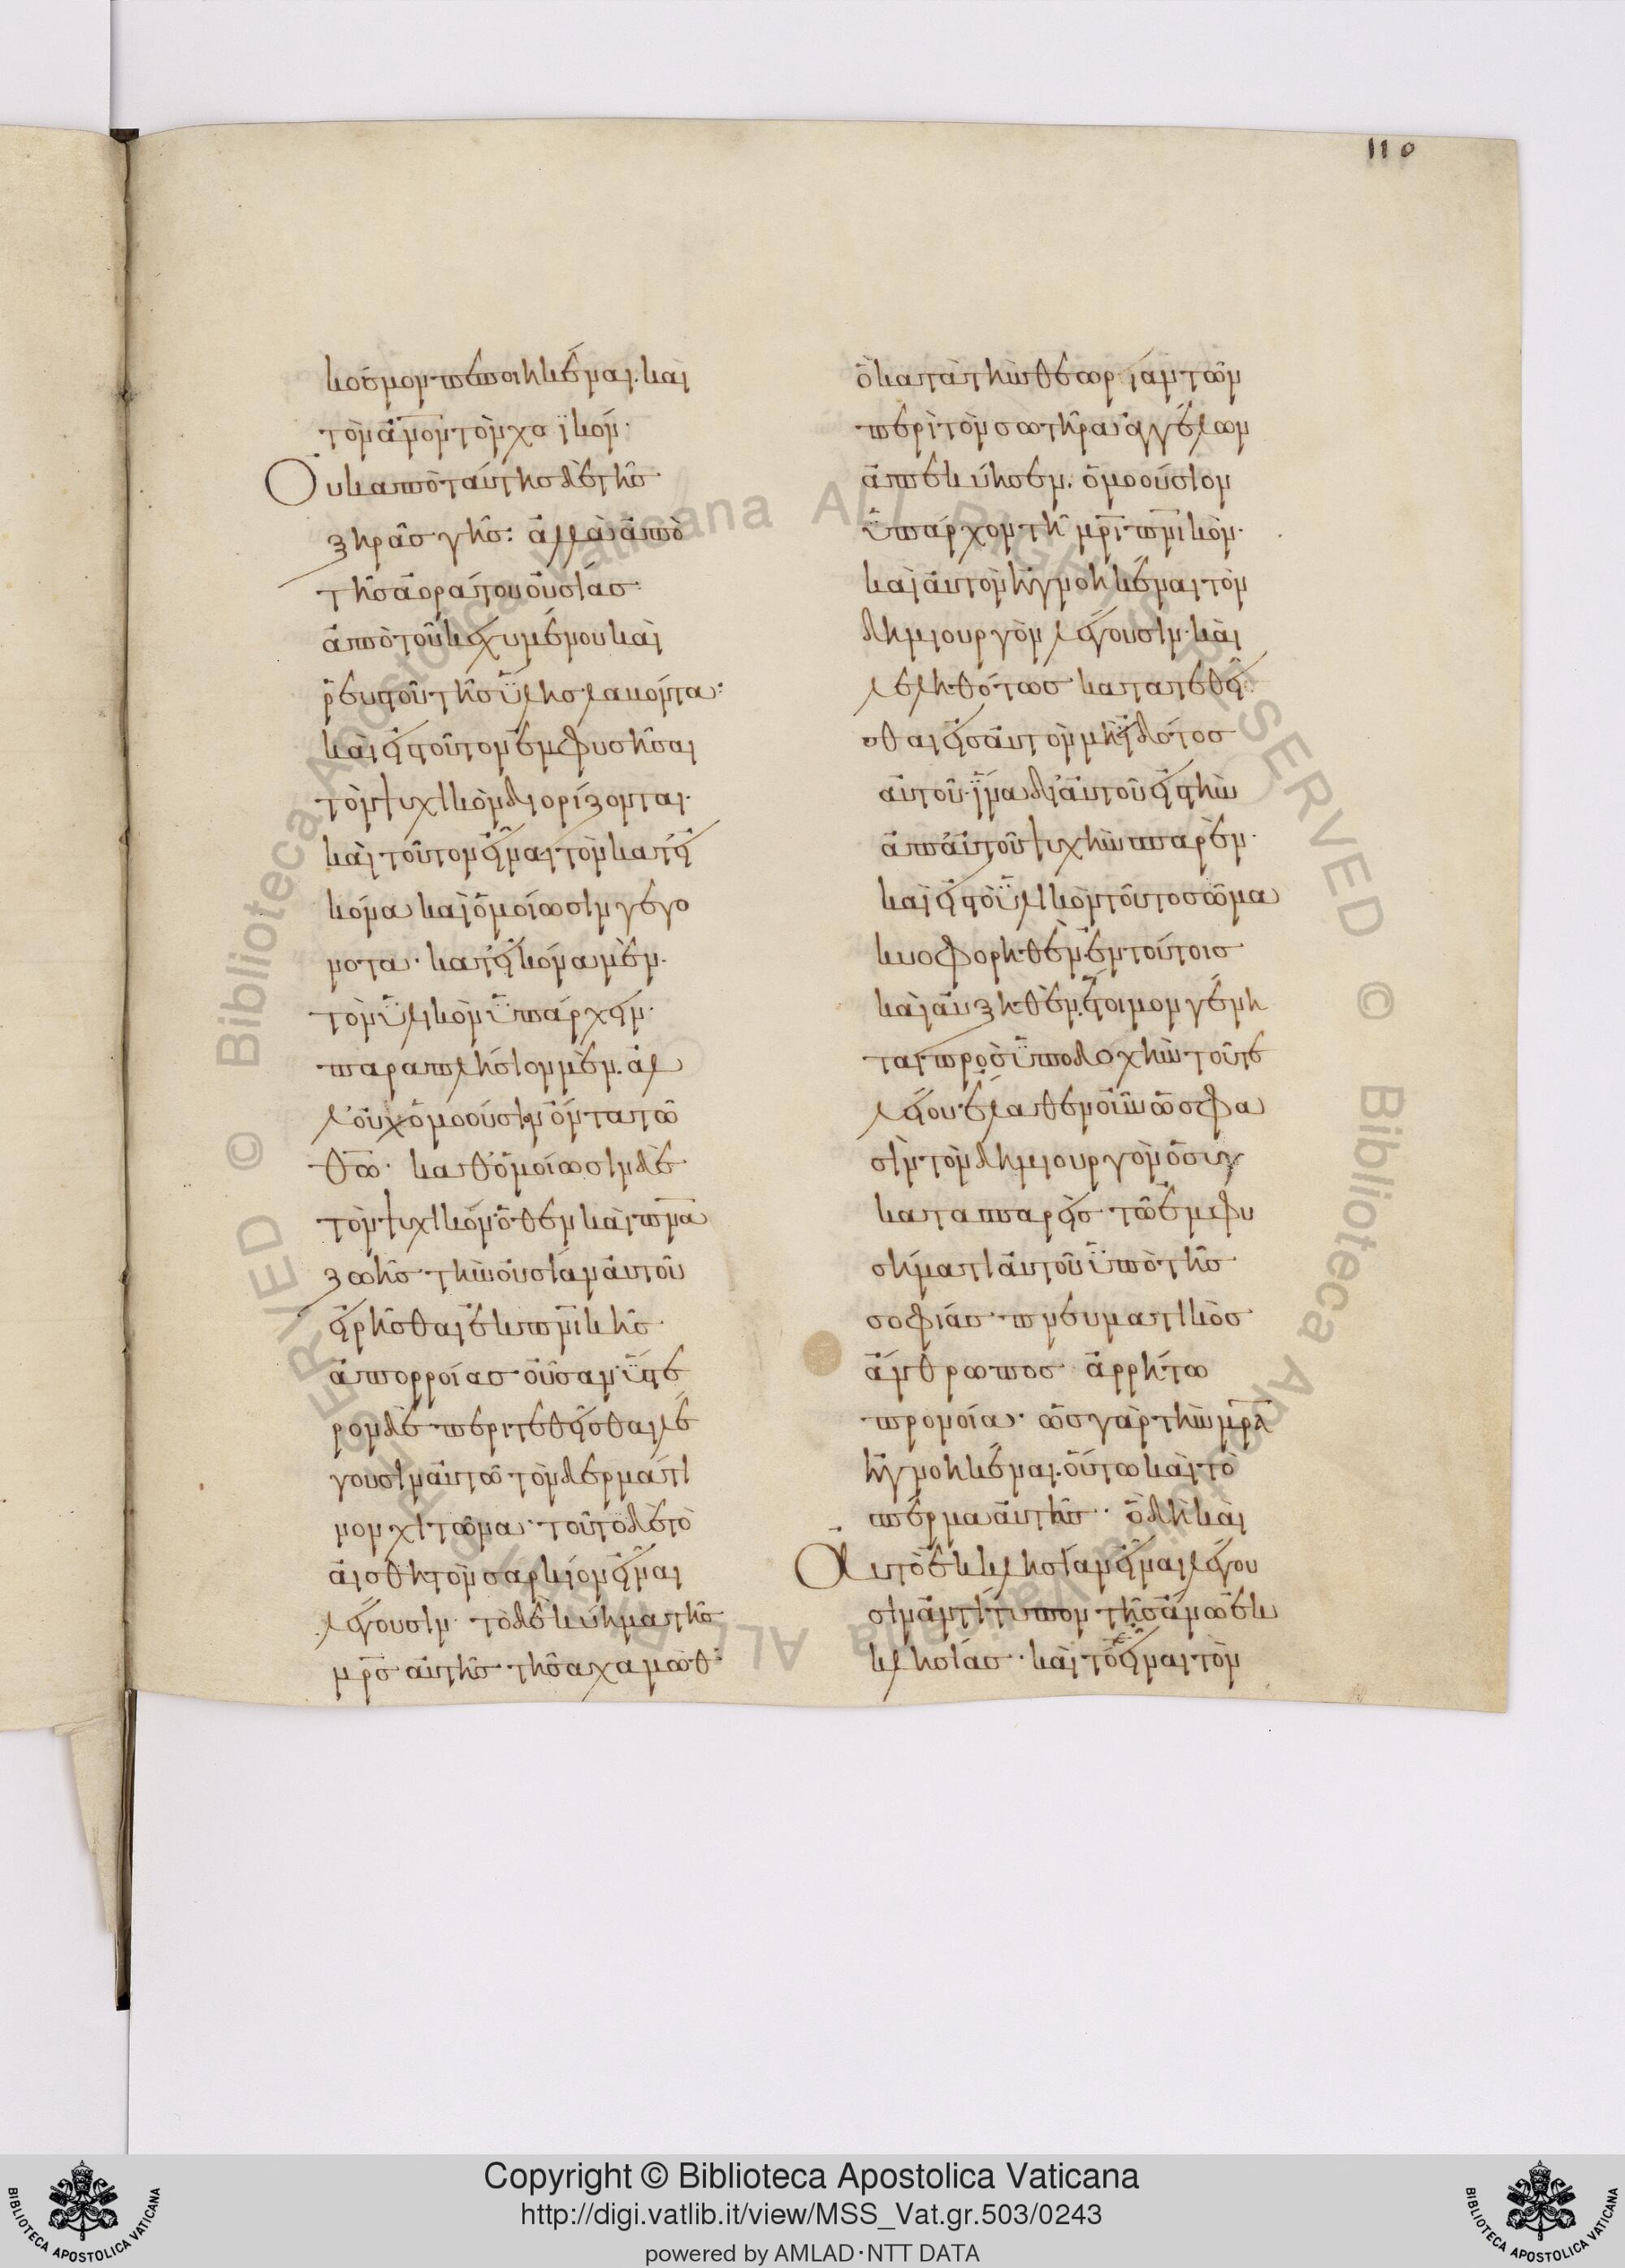 110
κόσμον πεποιηκέναι. καὶ
τὸν ἄνον τὸν χοϊκόν·
Οὐκ ἀπὸ ταύτης δὲ τῆς
ξηρᾶς γῆς: ἀλλὰ ἀπὸ
τῆς ἀοράτου οὐσίας·
ἀπὸ τοῦ κεχυμένου καὶ
ῥευστοῦ τῆς ὕλης λακόντα:
καὶ εἰς τοῦτον ἐμφυσῆσαι
τὸν ψυχικὸν διορίζονται.
καὶ τοῦτον εἶναι τὸν κατ εἰ
κόνα καὶ ὁμοίωσιν γεγο
νοτα· κατ εἰκόνα μὲν.
τὸν ὑλικὸν ὑπάρχειν·
παραπλήσιον μὲν. ἀλ
λ' οὐχ ὁμοούσιον ὄντα τῶ
θῶ· καθ' ὁμοίωσιν δὲ
τὸν ψυχικόν ὅθεν καὶ πνα
ζωῆς τὴν οὐσίαν αὐτοῦ
εἰρῆσθαι ἐκ πνικῆς
ἀπορροίας οὖσαν· ὕστε
ρον δὲ περιτεθεῖσθαι λέ
γουσιν αὐτῶ τὸν δερμάτι
νον χιτῶνα· τοῦτο δὲ τὸ
αἰσθητὸν σαρκίον εἶναι
λέγουσιν· τὸ δὲ κύημα τῆς
μρς αὐτῆς τῆς αχαμὼθ:
ὃ κατὰ τὴν θεωρίαν τῶν
περὶ τὸν σωτῆρα ἀγγέλων
ἀπεκύησεν. ὁμοούσιον
ὑπάρχον τῆ μρὶ πνικὸν·
καὶ αὐτὸν ἠγνοηκέναι τὸν
δημιουργὸν λέγουσιν· καὶ
λεληθότως κατατεθεῖ
σθαι εἰς αὐτὸν μὴ εἰδότος
αὐτοῦ· ἵνα δι' αὐτοῦ εἰς τὴν
ἀπ' αὐτοῦ ψυχὴν σπαρὲν·
καὶ εἰς τὸ ὑλικὸν τοῦτο σῶμα
κυοφορηθὲν ἐν τούτοις
καὶ αὐξηθὲν, ἕτοιμον γένη
ται πρὸς ὑποδοχὴν τοῦ τε
λείου ἔλαθεν οὖν ὥς φα
σὶν τὸν δημιουργὸν ὁ συγ
κατασπαρεὶς τῶ ἐμφυ
σήματι αὐτοῦ ὑπὸ τῆς
σοφίας πνευματικὸς
ἄνθρωπος ἀρρήτω
προνοία· ὡς γὰρ τὴν μρα
ἠγνοηκέναι. οὕτω καὶ τὸ
σπέρμα αὐτῆς· ὃ δὴ καὶ
Αυτὸ ἐκκλησίαν εἶναι λέγου
σιν ἀντίτυπον τῆς ἄνω ἐκ
κλησίας· καὶ τὸ εἶναι τὸν
Copyright © Biblioteca Apostolica Vaticana
http://digi.vatlib.it/view/MSS_Vat.gr.503/0243
powered by AMLAD·NTT DATA